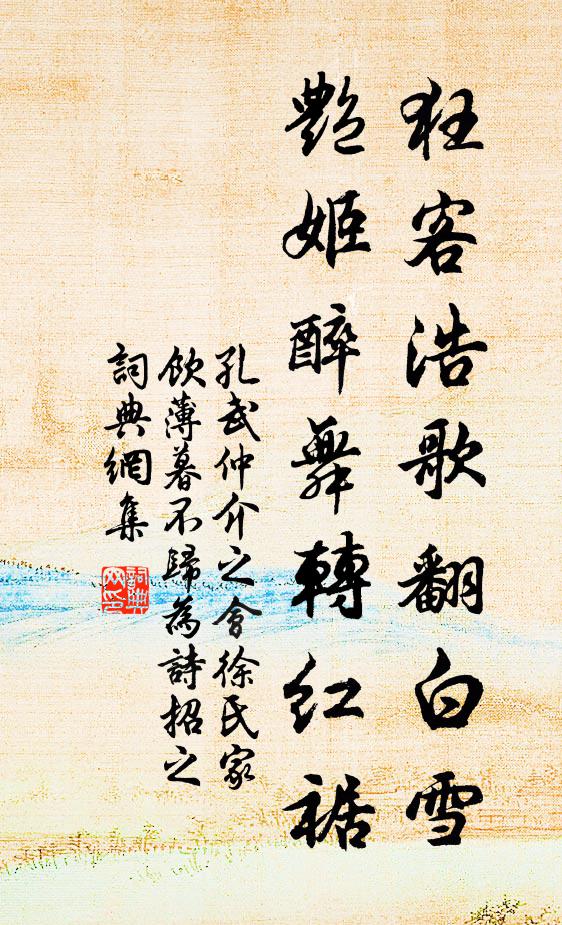 狂客浩歌翻白雪
艷姬醉舞轉紅裾
孔武仲介之會徐氏家
飲薄暮不歸為詩招之
詞典網集
詞典